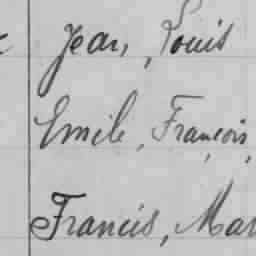 Jean, Louis
Emile, François,
Francis, Mar